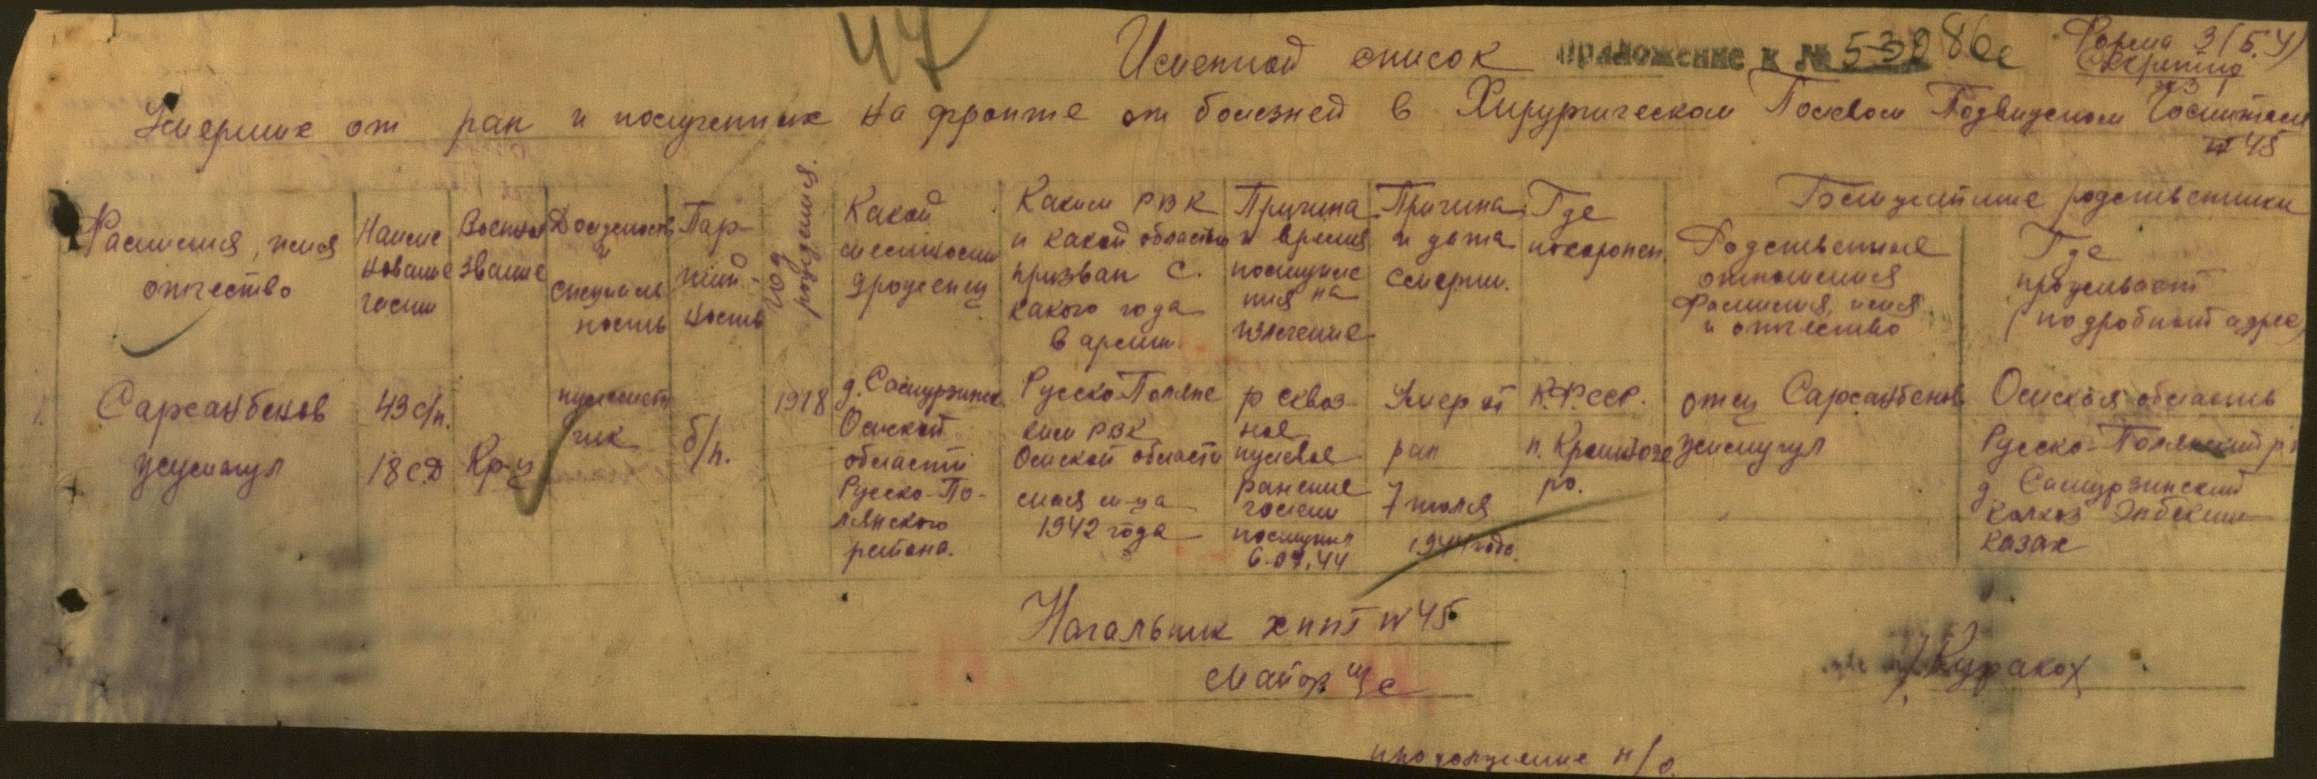 47
Именной список
приложение к № 53286с
Форма 3 (Б.У)
Секретно
Умерших от ран и полученных на фронте от болезней в Хирургическом Полевом Подвижном Госпитале
№ 45
Фамилия, имя
отчество
Наиме
нование
части
Военное
звание
Должность
и
специаль
ность
Пар-
тий
ность
год
рождения.
Какой
местности
уроженец
Каким РВК
и какой области
призван с.
какого года
в армии
Причина
и время
поступле
ния на
излечение
Причина
и дата
смерти.
Где
похоронен.
Ближайшие родственники
Родственные
отношения
Фамилия, имя
и отчество
Где
проживает
(подробный адрес)
1.
Сарсанбенов
жумагул
43 с/п.
18 СД
Кр-ц
пулеметчик
б/п.
1918
Омской
области
Русско-По-
лянского
района.
Русско-Полянс
ким РВК
Омской области
мая м-ца
1942 года
р сквоз
ное
пулевое
ранение
голени
поступил
6.07.44
Умер от
ран
7 июля
1944 года.
К.Ф.ССР.
отец Сарсанбенов
Омская область
Русско-Полянский р-н
колхоз Энбекши
казак
Начальник ХППГ № 45
майор м/с
продолжение н/о